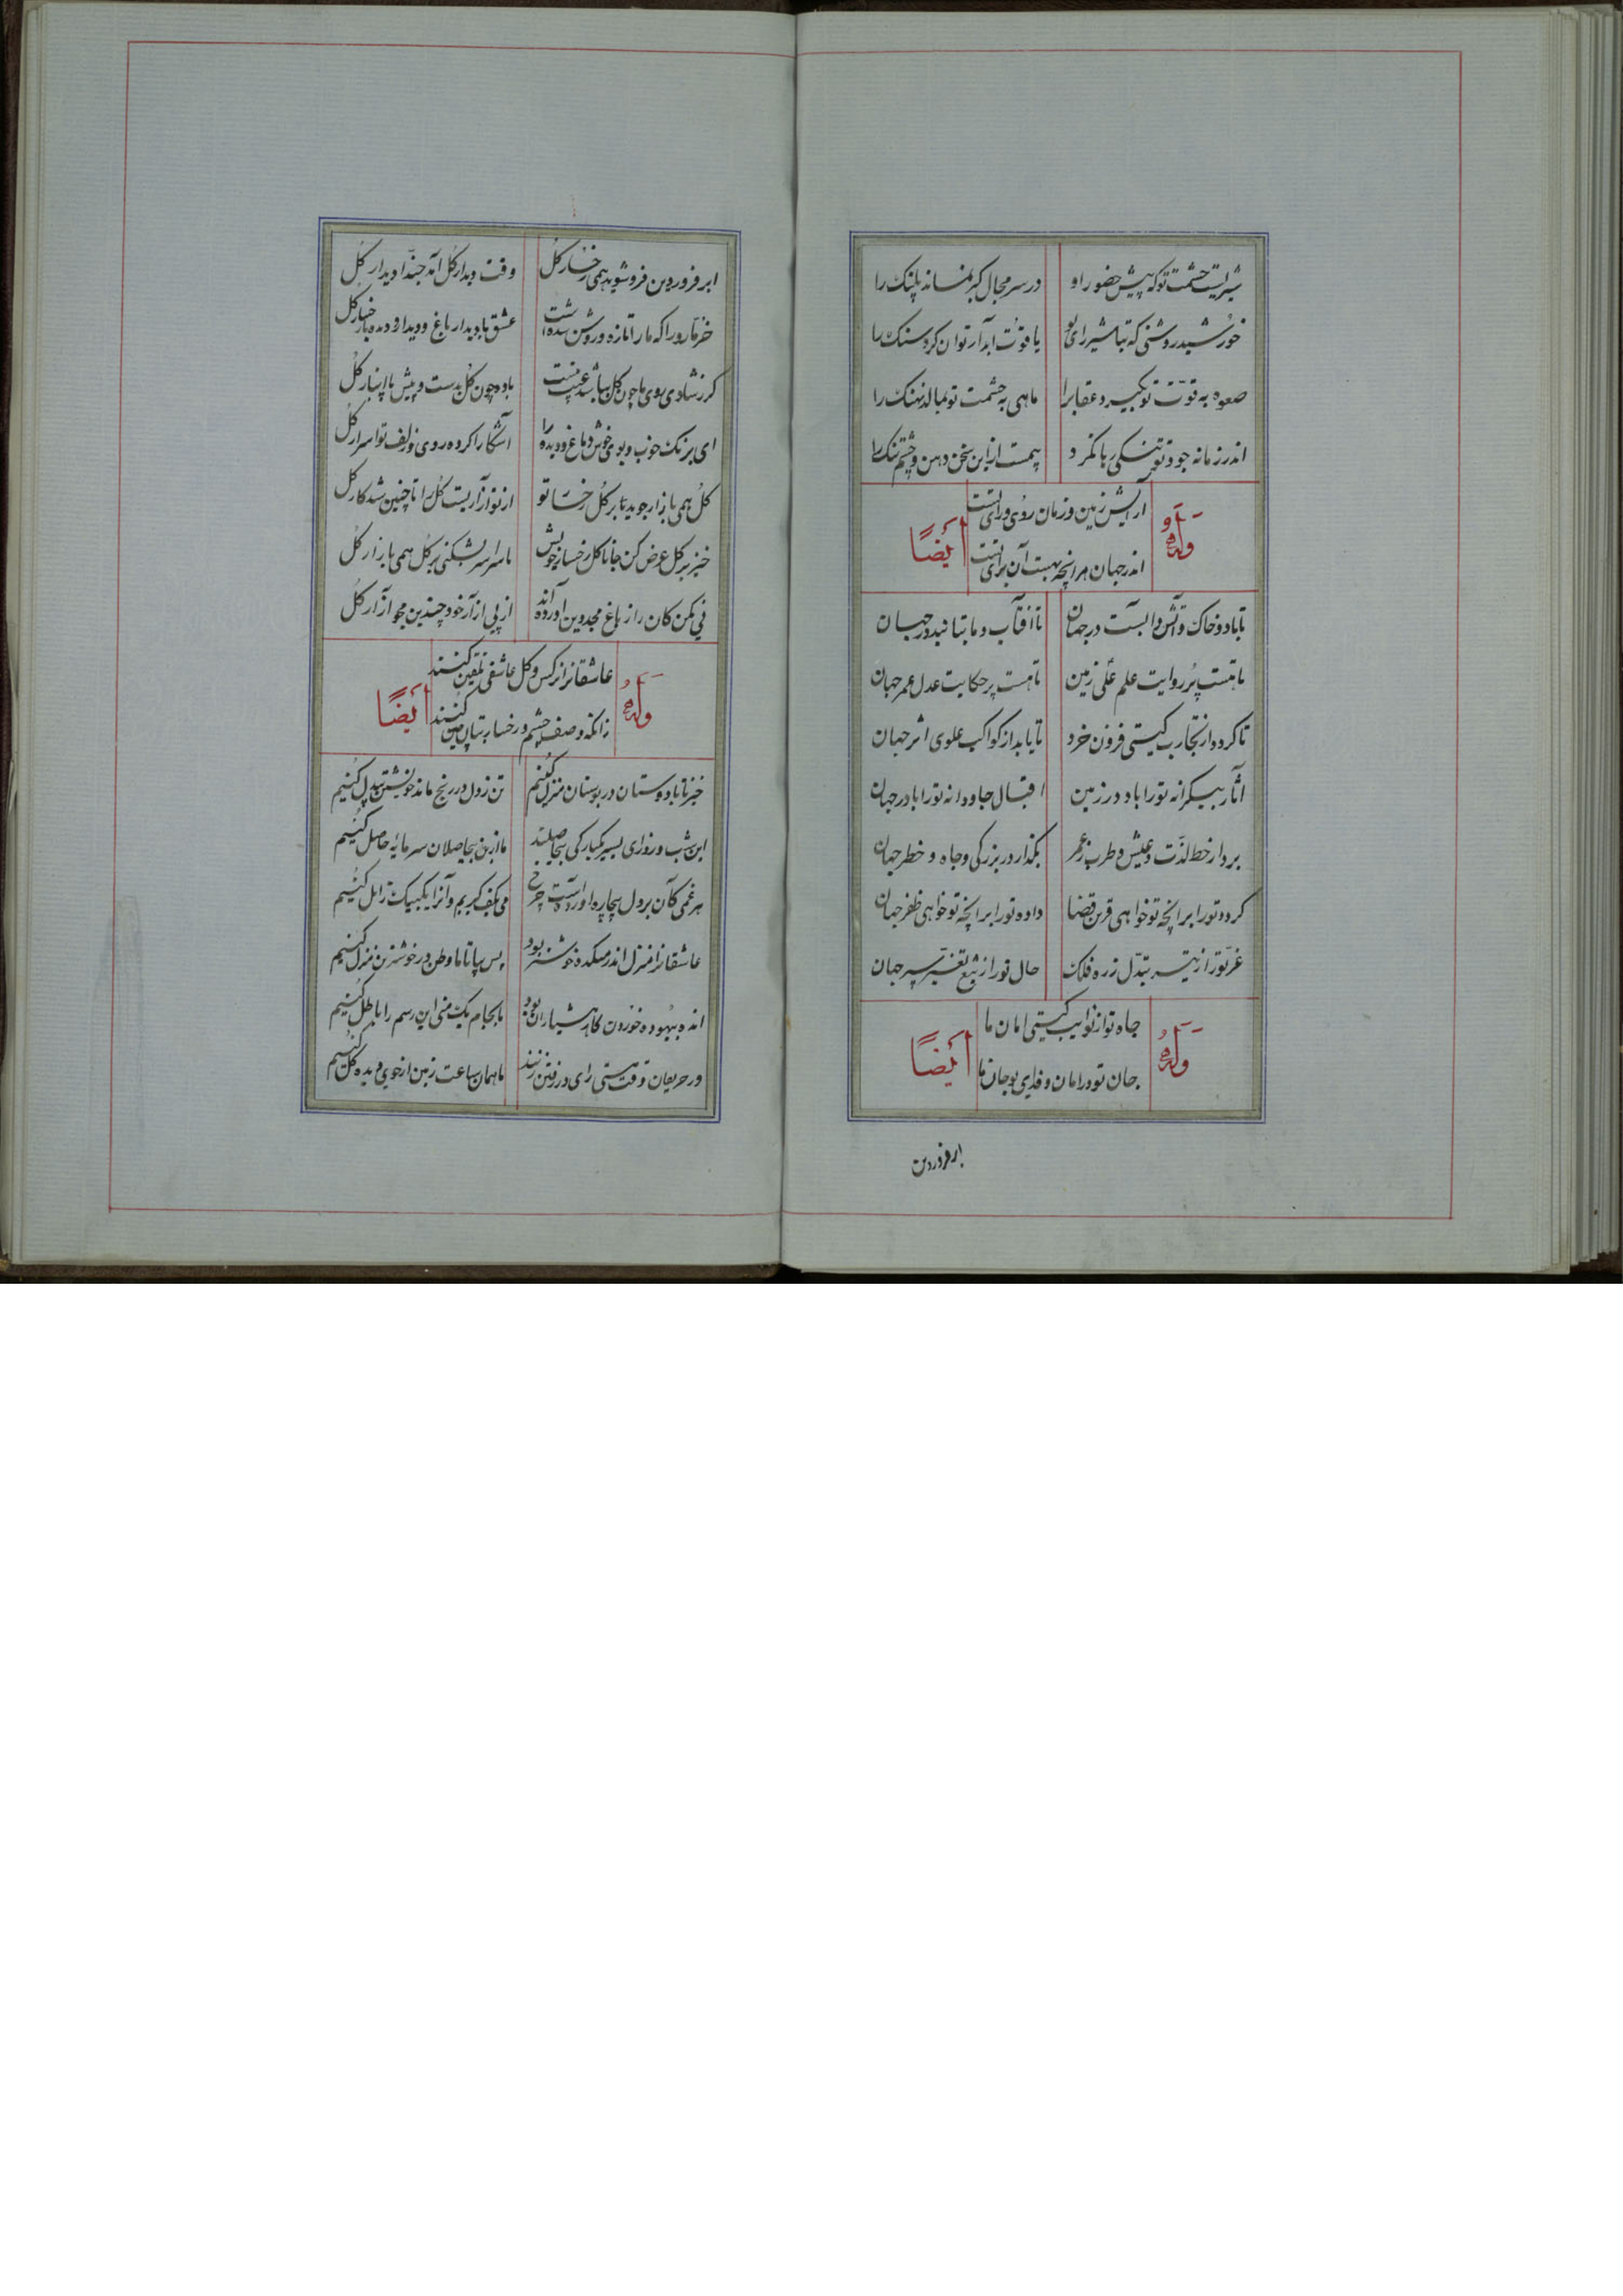 شیریست حشمت تو که پیش حضور او
در سر مجال کبر نماند پلنک را
خورشید روشنی که تباشیر رای تو
یاقوت آبدار توان کرد سنک را
صعوه به قوّت تو بگیرد عقابرا
ماهی به حشمت تو بمالد نهنک را
اندر زمانه جود تو تنکی رها نکرد
بیمست ازین سخن دهن و چشم تنک را
وله
آرایش زمین و زمان روی و رای تست
اندر جهان هر انچه بهست آن برای تست
أیضًا
تا باد و خاک و آتش و آبست در جهان
تا آفتاب و ماه بتابد در جهان
تا هست پُر روایت علم علی زمین
تا هست پر حکایت عدل عمر جهان
تا کردد از تجارب کیتی فزون خرد
تا یابد از کواکب علوی اثر جهان
آثار بیکرانه تو را باد در زمین
اقبال جاودانه تو را باد در جهان
بردار خط لذّت و عیش و طرب ز عمر
بگذار در بزرکی و جاه و خطر جهان
کرده تو را بر انچه تو خواهی قرین قضا
داده تو را بر انچه تو خواهی ظفر جهان
عزّ تو را ز تبدّل زره فلک
حال تو را ز تیغ تغیّر سپر جهان
وله
جاه تو از نوایب کیتی امان ما
جان تو در امان و فدای تو جان ما
أیضًا
ابر فروردین
ابر فروردین فرو شوید همی رخسار کل
وقت دیدار کل آمد حبّذا دیدار کل
خرّما روزا که ما را تازه و روشن شدست
عشق با دیدار باغ و دیده از دیدار کل
کر ز شادی روی ما چون کل بباشد عیب نیست
باده چون کل بدست و پیش ما انبار کل
ای برنک خوب و بوی خوش دماغ و دیده را
آشکارا کرده روی و زلف تو اسرار کل
کل همی بازار جوید تا بر کل رخسا تو
از تو آزاریست کل را تا چنین شد کار کل
خیز بر کل عرض کن جانا کل رخسار خویش
تا سراسر بشکنی بر کل همی بازار کل
نی مکن کان را ز باغ مجد دین آورده‌اند
از پی آزار خود چندین مجو آزار کل
وله
عاشقانرا نرکس و کل عاشقی تلقین کنند
زانکه وصف چشم و رخسار بتان چین کنند
أیضًا
خیز تا با دوستان در بوستان منزل کنیم
تن ز دل در رنج ماند خویشتن بیدل کنیم
این شب و روز ای پسر یکبارکی بیحاصلند
ما ازین بیحاصلان سرمایهٔ حاصل کنیم
هر غمی کآن بر دل بیچاره آوردست چرخ
می بکف کیریم و آنرا یک بیک زائل کنیم
عاشقانرا منزل اندر میکده خوشتر بود
پس بیا تا ما وطن در خوشترین منزل کنیم
انده بیهوده خوردن کار هشیاران بود
ما بجام یک منی این رسم را باطل کنیم
ور حریفان وقت مستی رای در رفتن زنند
ما همان ساعت زمین از خوی دیده کل کنیم